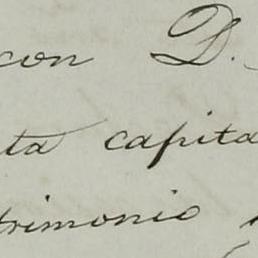 con D.
ta capita
trimonio